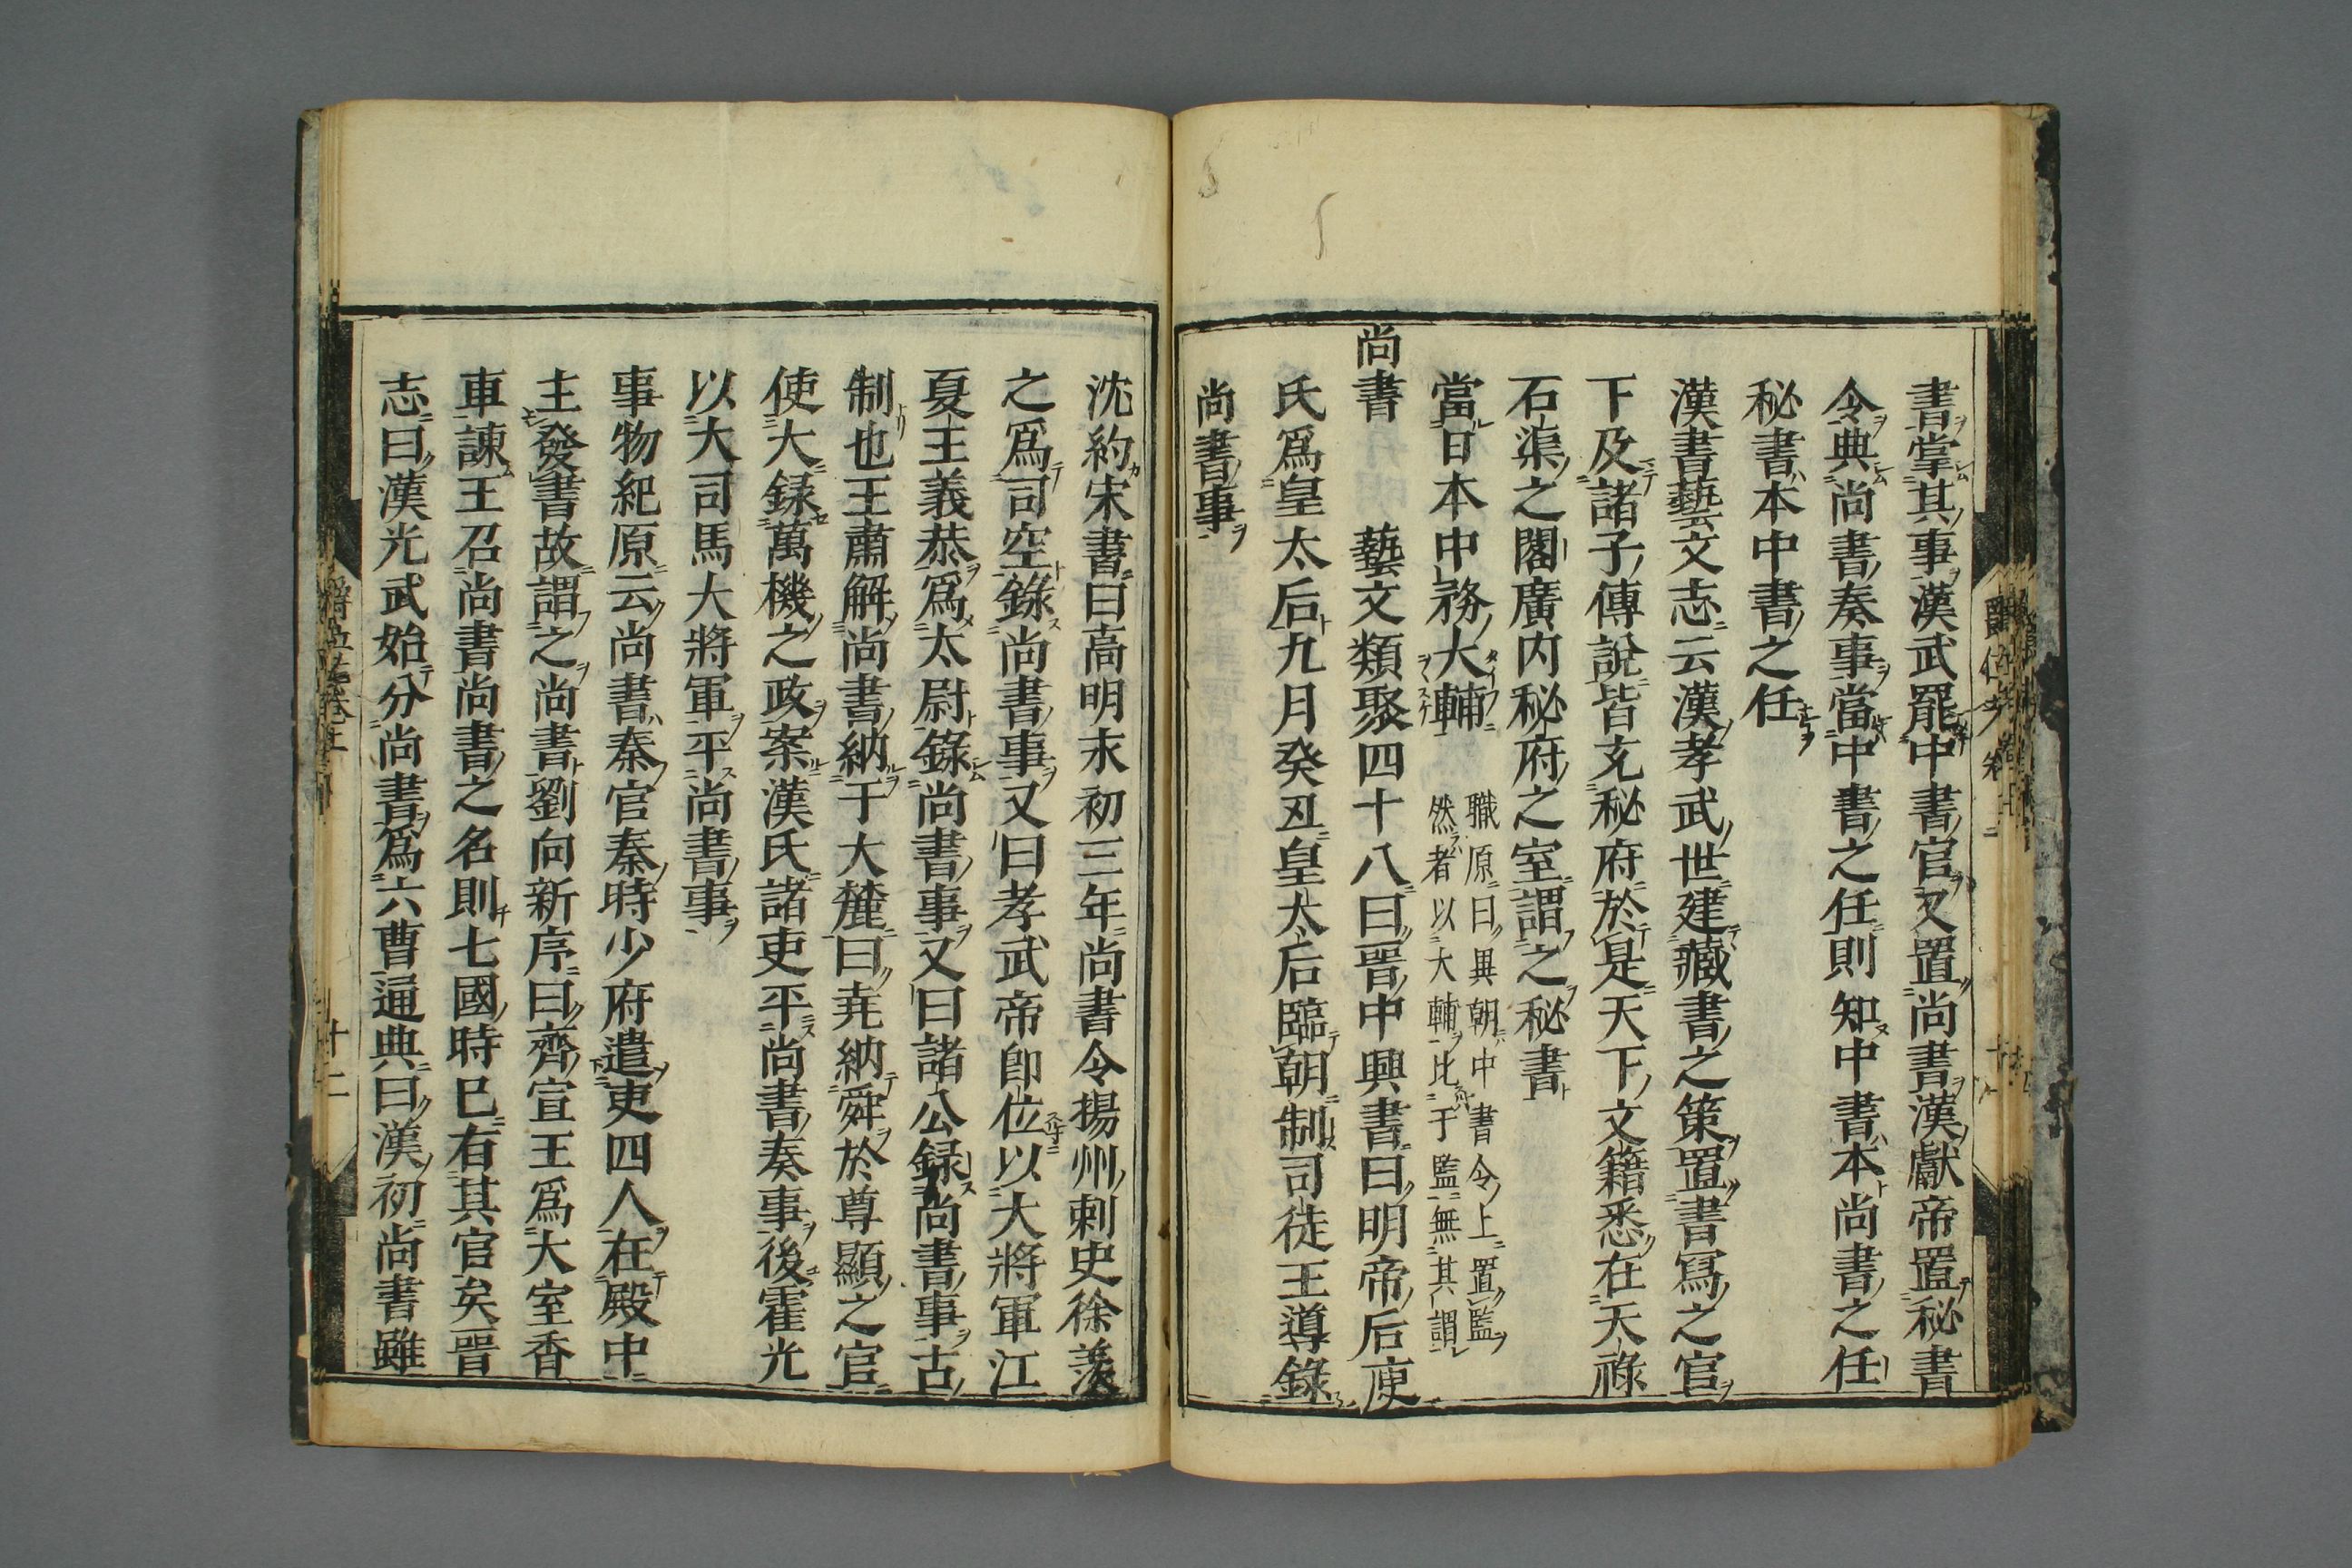 書掌其事漢武罷中書官又置尚書漢獻帝置秘書
令典尚書奏事當中書之任則知中書本尚書之任
秘書本中書之任
漢書藝文志云漢孝武世建藏書之策置書寫之官
下及諸子傳說皆充秘府於是天下文籍悉在天祿
石渠之閣廣内秘府之室謂之秘書
當日本中務大輔
職原曰異朝中書令上置監
然者以大輔比于監無其謂
尚書 藝文類聚四十八曰晉中興書曰明帝后庾
氏爲皇太后九月癸丑皇太后臨朝制司徒王導錄
尚書事
沈約宋書曰高明末初三年尚書令揚州刺史徐羨
之爲司空錄尚書事又曰孝武帝卽位以大將軍江
夏王義恭爲太尉錄尚書事又曰諸公録尚書事古
制也王肅解尚書納于大麓曰尭納舜於尊顯之官
使大録萬機之政案漢氏諸吏平尚書奏事後霍光
以大司馬大將軍平尚書事
事物紀原云尚書秦官秦時少府遣吏四人在殿中
主發書故謂之尚書劉向新序曰齊宣王爲大室香
車諫王召尚書尚書之名則七國時已有其官矣晉
志曰漢光武始分尚書爲六曹通典曰漢初尚書雖
十二